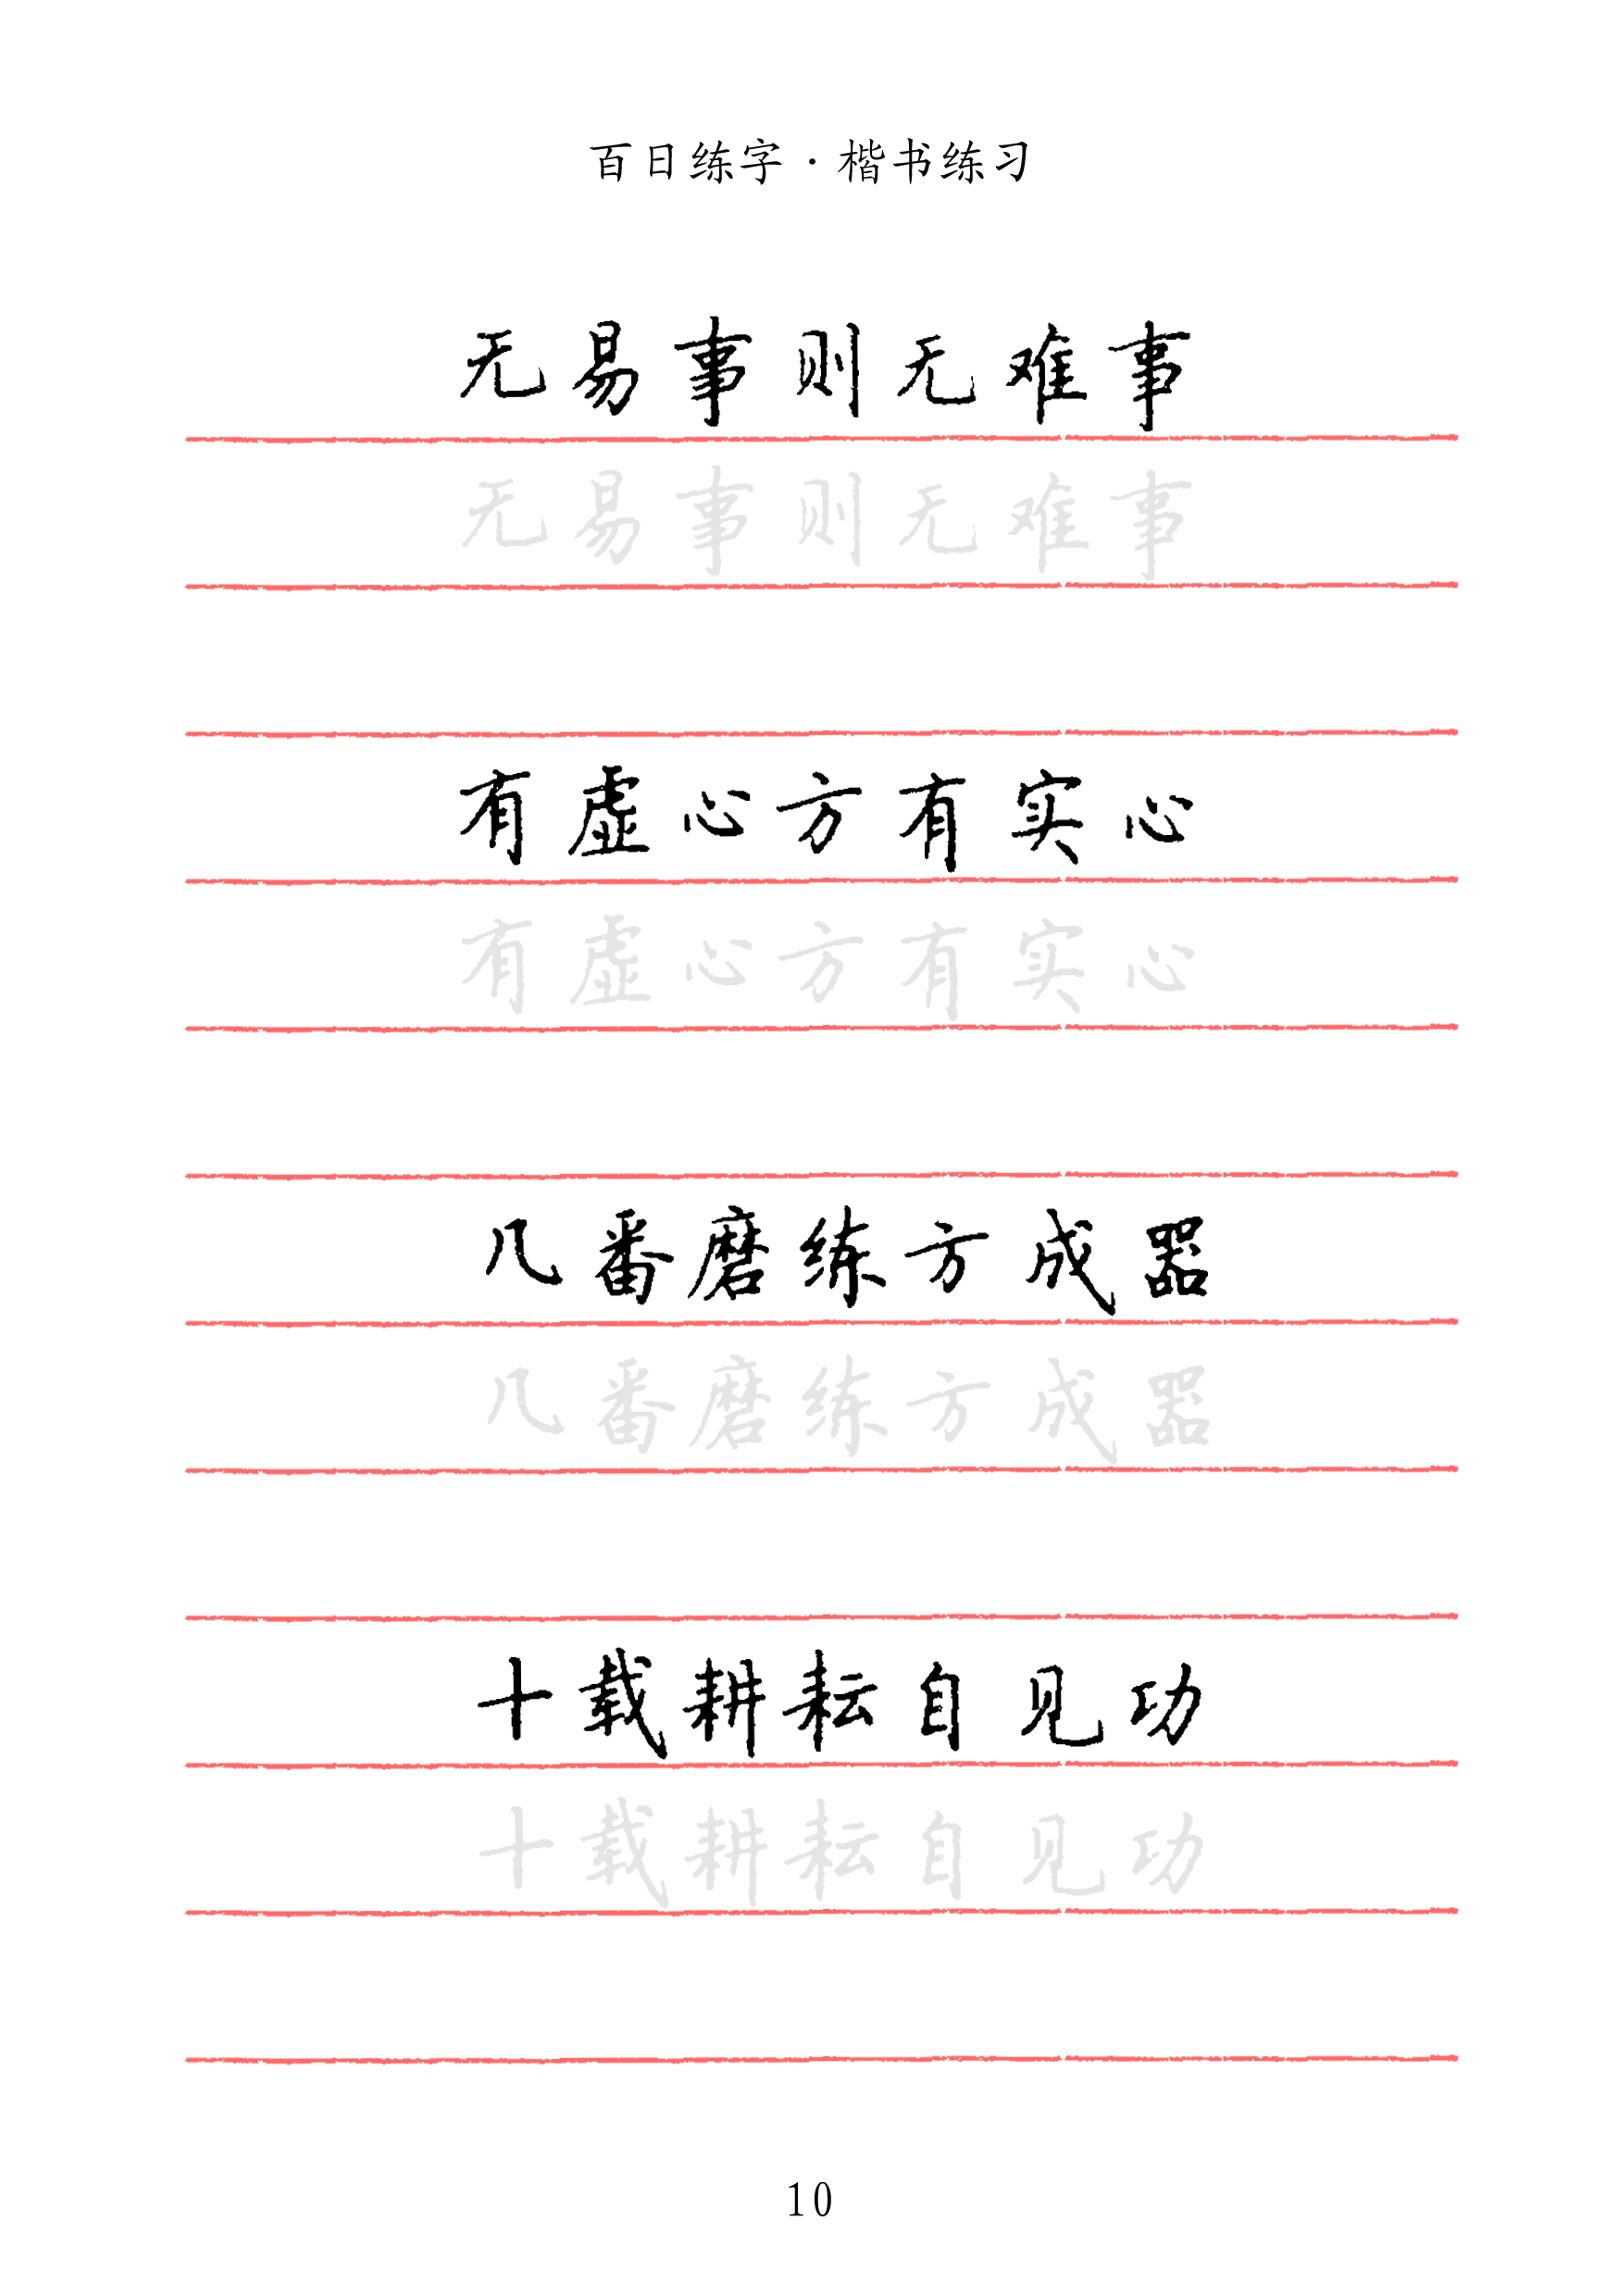 百日练字·楷书练习
无易事则无难事
无易事则无难事
有虚心方有实心
有虚心方有实心
几番磨练方成器
几番磨练方成器
十载耕耘自见功
十载耕耘自见功
10